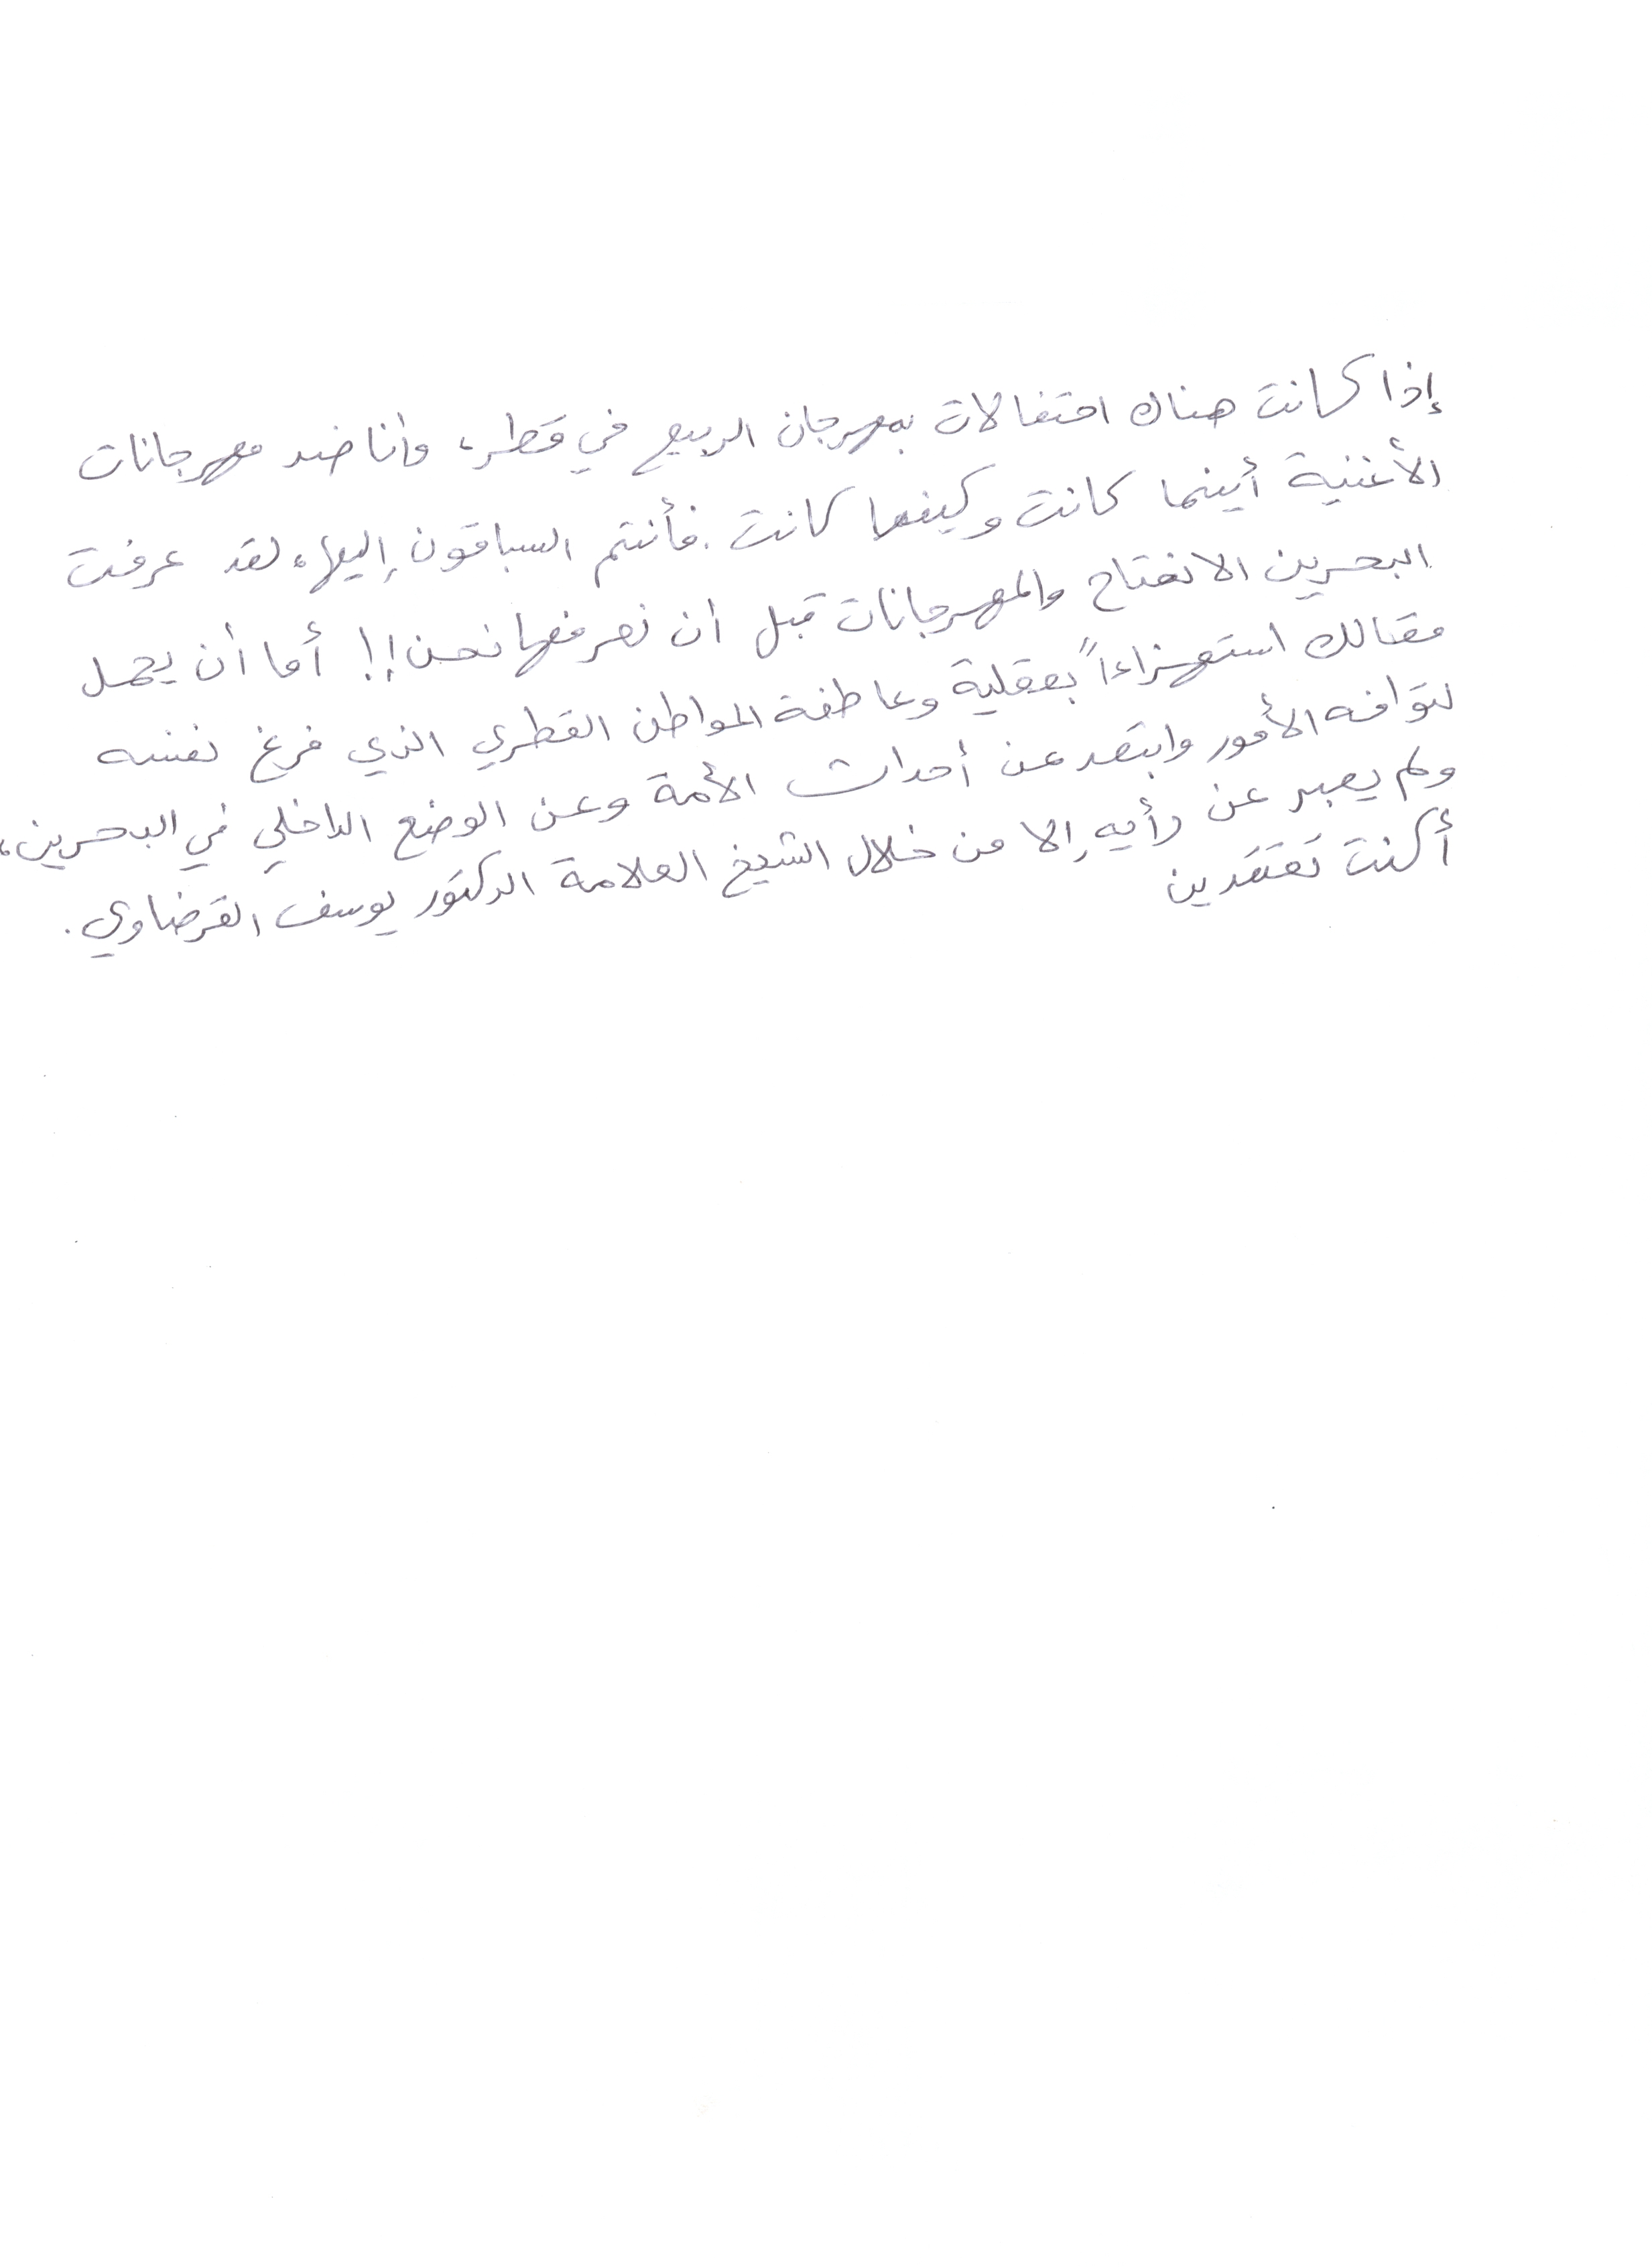 إذا كانت هناك احتفالات بمهرجان الربيع في قطر، وأنا ضد مهرجانات
الأغنية أينما كانت وكيفما كانت. فأنتم السباقون إليها، لقد عرفت
البحرين الانفتاح والمهرجانات قبل أن نعرفها نحن!! أما أن يحمل
مقالك استهزاءاً بعقلية وعاطفة المواطن القطري الذي فرغ نفسه
لتوافه الأمور وابتعد عن أحداث الأمة وعن الوضع الداخلي في البحرين،
ولم يعبر عن رأيه إلا من خلال الشيخ العلامة الدكتور يوسف القرضاوي.
أكنت تعتقدين